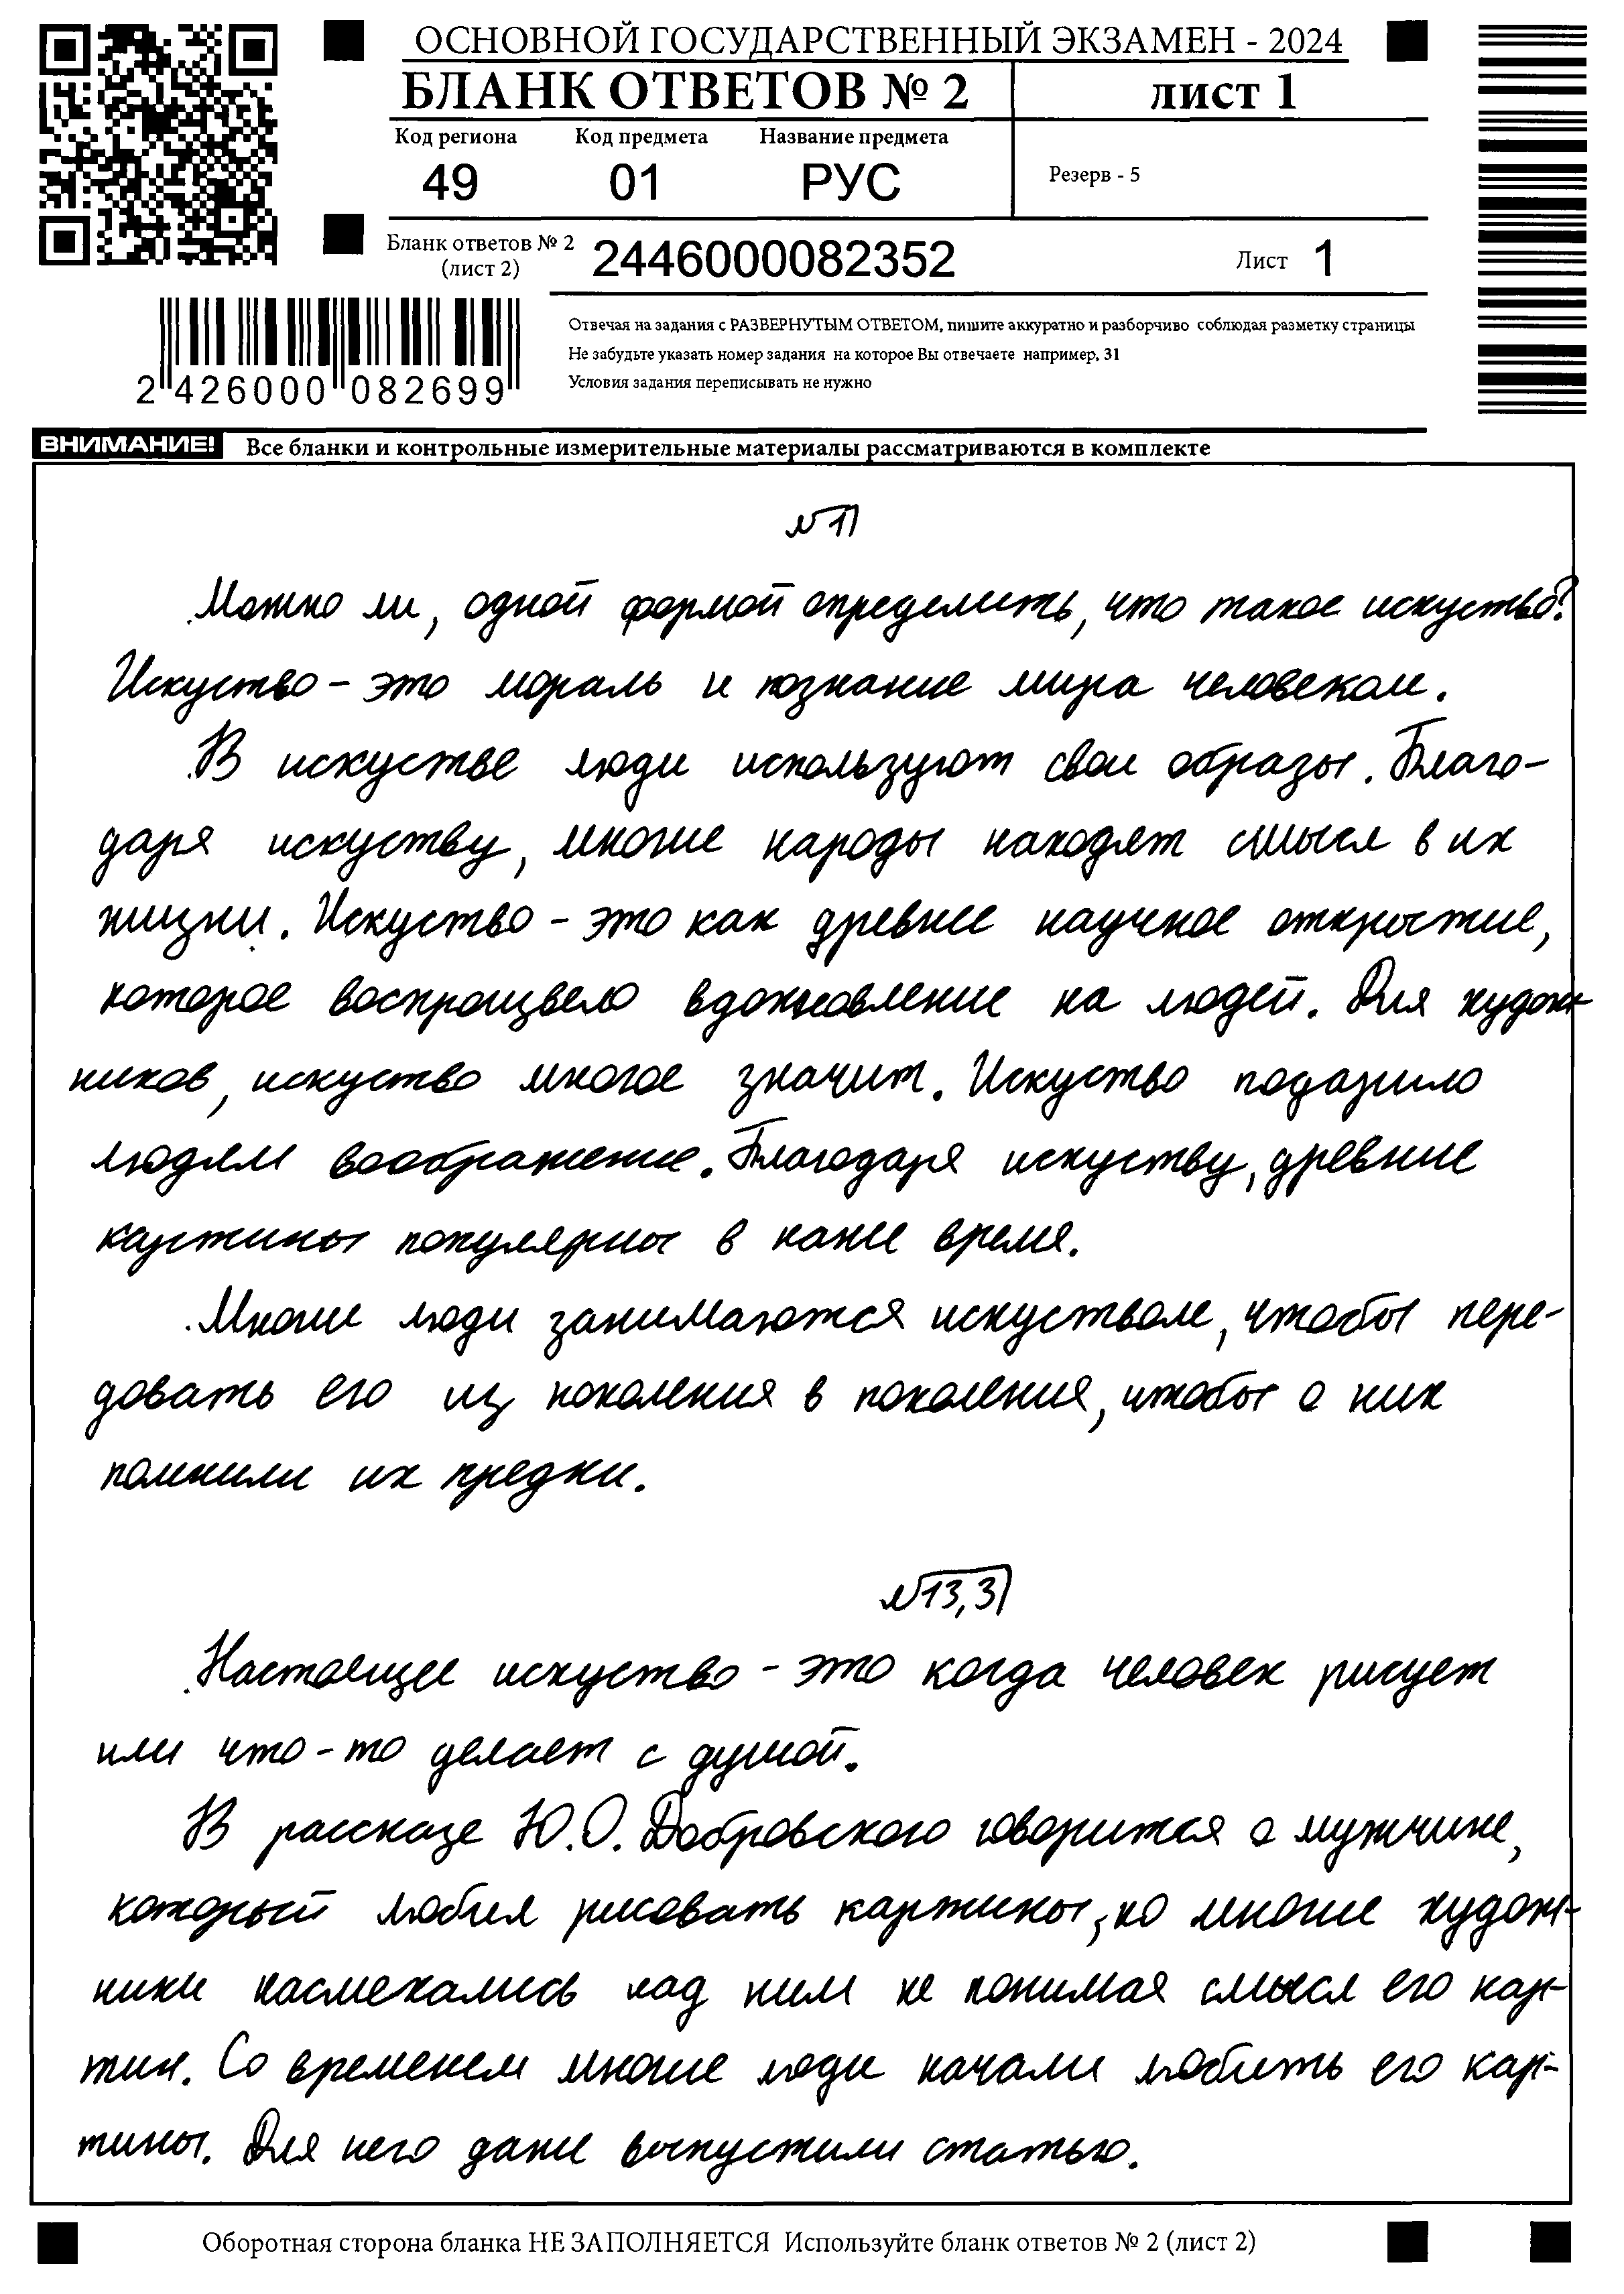 ОСНОВНОЙ ГОСУДАРСТВЕННЫЙ ЭКЗАМЕН - 2024
БЛАНК ОТВЕТОВ № 2
лист 1
Код региона
Код предмета
Название предмета
49
01
РУС
Резерв - 5
Бланк ответов № 2
(лист 2)
2446000082352
Лист 1
2 426000 082699
Отвечая на задания с РАЗВЕРНУТЫМ ОТВЕТОМ, пишите аккуратно и разборчиво соблюдая разметку страницы
Не забудьте указать номер задания на которое Вы отвечаете например, 31
Условия задания переписывать не нужно
ВНИМАНИЕ! Все бланки и контрольные измерительные материалы рассматриваются в комплекте
№1
Можно ли, одной формой определить, что такое искуство?
Искуство - это мораль и познание мира человеком.
В искустве люди используют свои образы. Благо-
даря искуству, многие народы находят смысл в их
жизни. Искуство - это как древнее научное открытие,
которое воспроизвело вдохновление на людей. Для худож-
ников, искуство многое значит. Искуство подазило
людям воображение. Благодаря искуству, древние
картины популярны в наше время.
Многие люди занимаются искуством, чтобы пере-
довать его из поколения в поколения, чтобы о них
помнили их предки.
№13,3
Настоящее искуство - это когда человек рисует
или что-то делает с душой.
В рассказе Ю.О. Добровского говорится о мужчине,
который любил рисовать картины, но многие худож-
ники насмехались над ним не понимая смысл его кар-
тин. Со временем многие люди начали любить его кар-
тины. Для него даже выпустили статью.
Оборотная сторона бланка НЕ ЗАПОЛНЯЕТСЯ Используйте бланк ответов № 2 (лист 2)